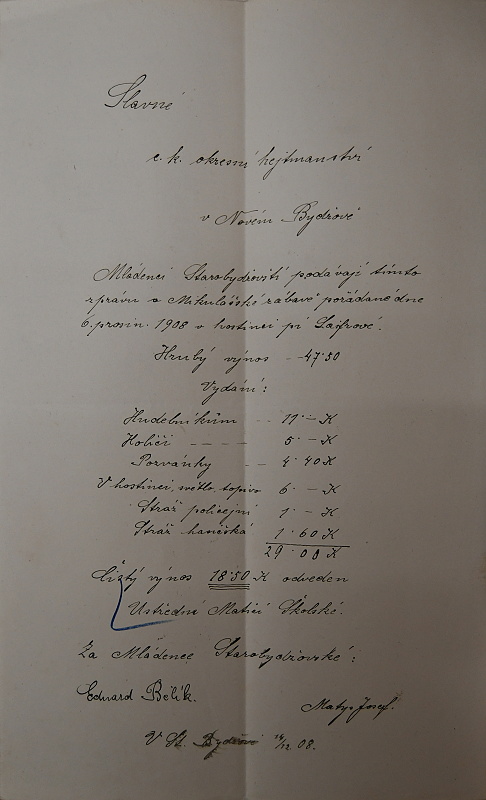 Slavné
c. k. okresní hejtmanství
v Novém Bydžově
Mládenci Starobydžovští podávají tímto
zprávu o Mikulášské zábavě pořádané dne
6. prosin. 1908 v hostinci pí Laifrové.
Hrubý výnos - 47·50
Vydání:
Hudebníkům -- 11·— K
Holiči ---- 5·— K
Pozvánky -- 4·40 K
V hostinci, světlo, topivo 6·— K
Stráž policejní 1·— K
Stráž hasičská 1·60 K
29·00 K
Čistý výnos 18·50 K odveden
Ústřední Matici Školské.
Za Mládence Starobydžovské:
Eduard Bělík.
Matys Josef.
V St. Bydžově 14/12 08.